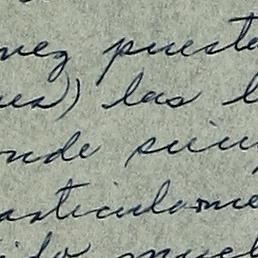 vez puesta
es) las l
nde siem
articularme
ido much